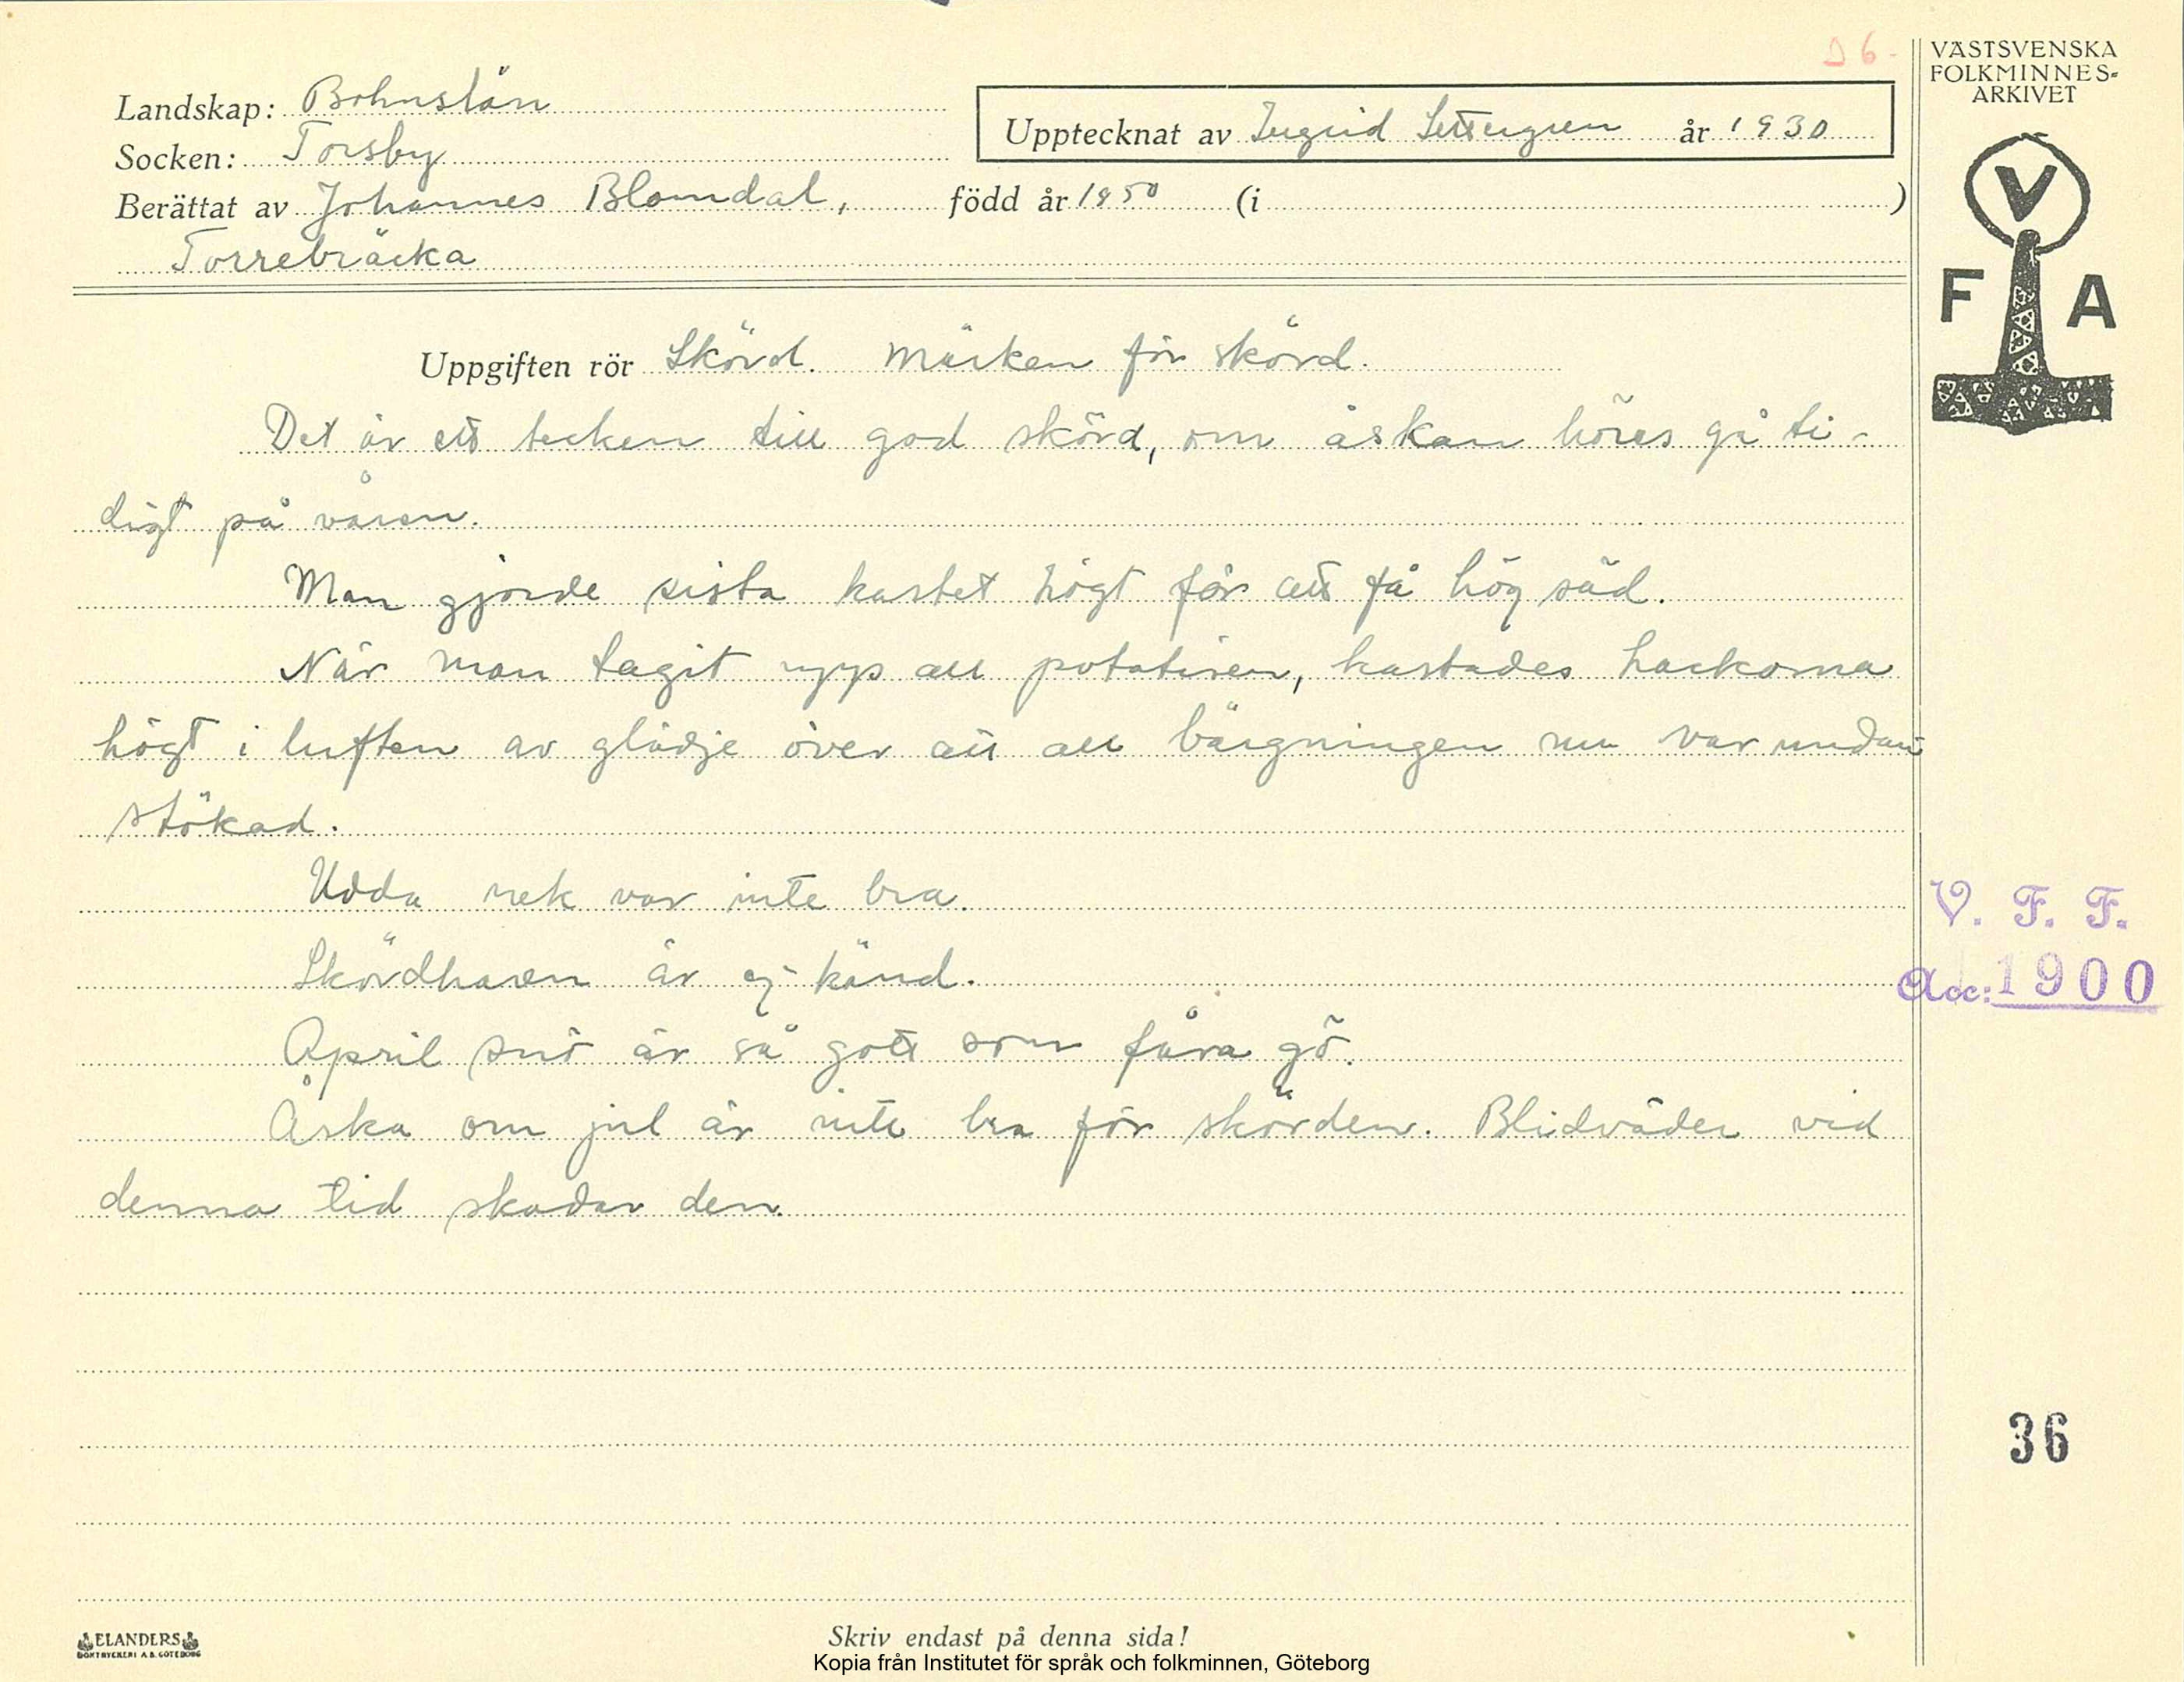 D 6.
VÄSTSVENSKA
FOLKMINNES-
ARKIVET
Landskap: Bohuslän
Upptecknat av Ingrid Settergren år 1930
Socken: Torsby
Berättat av Johannes Blomdal, född år 1850 (i )
Torrebräcka
V
F A
Uppgiften rör Skörd. Märken för skörd.
Det är ett tecken till god skörd, om åskan höres gå ti-
digt på våren.
Man gjorde sista kastet högt för att få hög säd.
När man tagit upp all potatisen, kastades hackorna
högt i luften av glädje över att all bärgningen nu var undan
stökad.
Udda nek var inte bra.
Skördharen är ej känd.
April snö är så gott som fåra gö.
Åska om jul är inte bra för skörden. Blidväder vid
denna tid skadar den.
V. F. F.
Acc: 1900
36
ELANDERS
BOKTRYCKERI A.B. GÖTEBORG
Skriv endast på denna sida!
Kopia från Institutet för språk och folkminnen, Göteborg